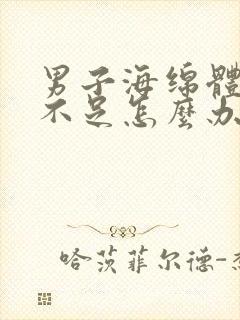 男子海绵體
不足怎麼办
哈茨菲尔德-杰